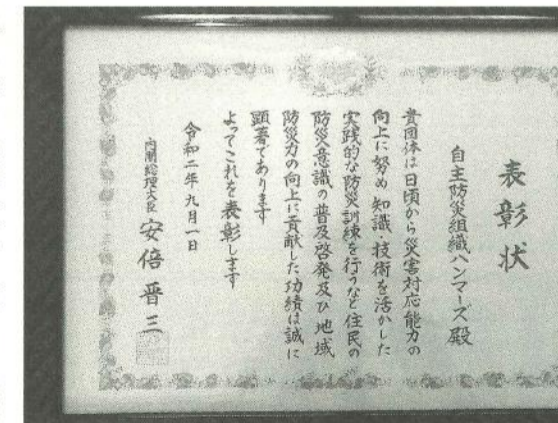 表彰状
自主防災組織ハンマーズ殿
貴団体は日頃から災害対応能力の
向上に努め知識・技術を活かした
実践的な防災訓練を行うなど住民の
防災意識の普及啓発及び地域
防災力の向上に貢献した功績は誠に
顕著であります
よってこれを表彰します
令和二年九月一日
内閣総理大臣 安倍晋三